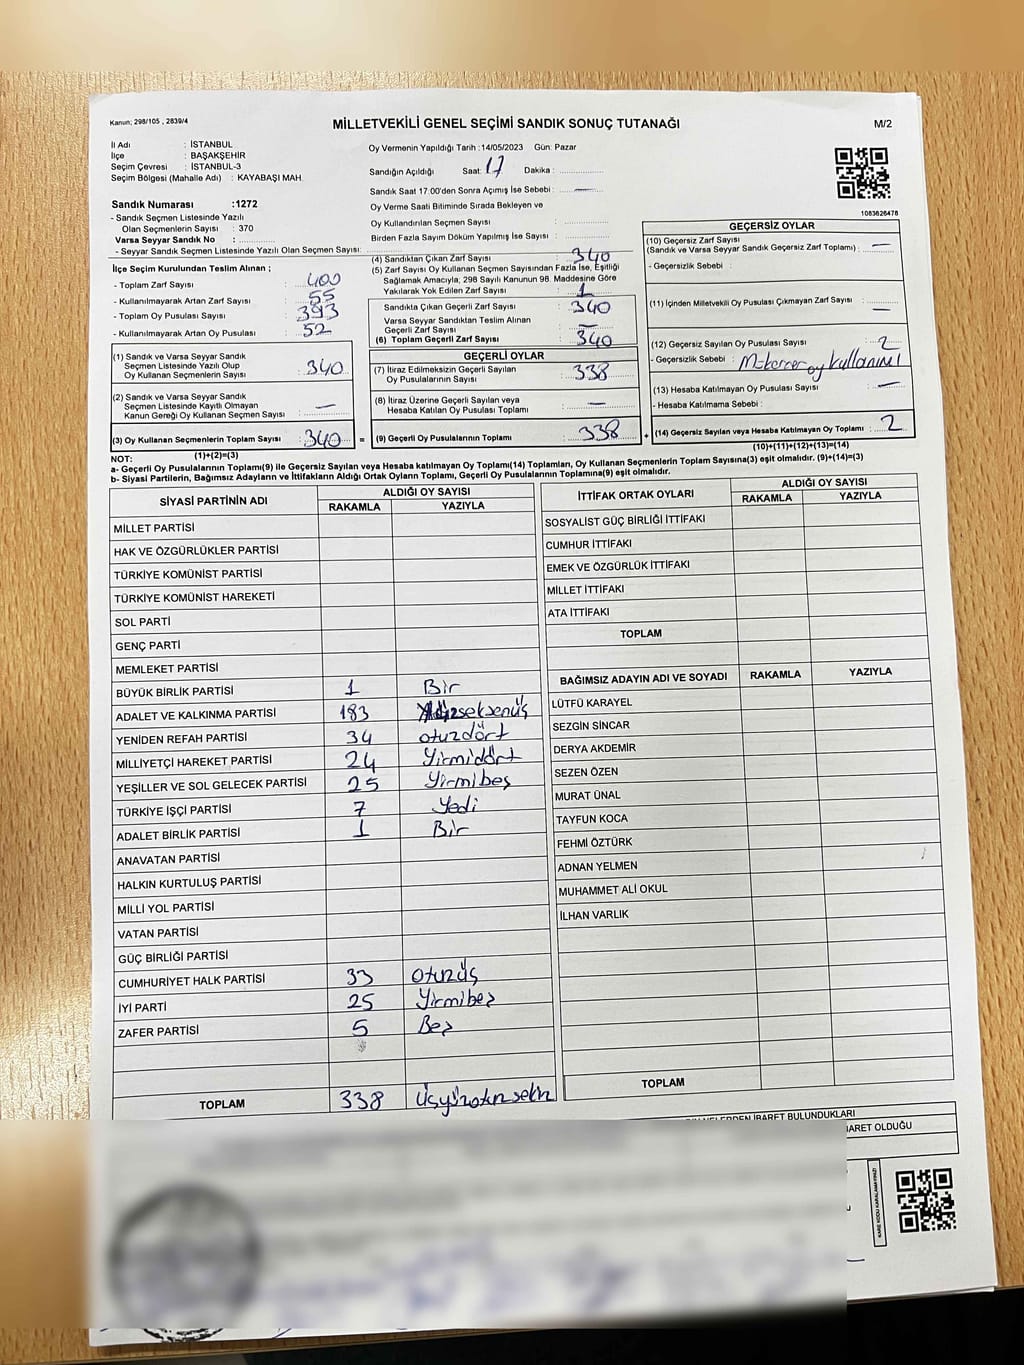 Kanun; 298/105 , 2839/4
MİLLETVEKİLİ GENEL SEÇİMİ SANDIK SONUÇ TUTANAĞI
M/2
İl Adı : İSTANBUL
İlçe : BAŞAKŞEHİR
Seçim Çevresi : İSTANBUL-3
Seçim Bölgesi (Mahalle Adı) : KAYABAŞI MAH.
Sandık Numarası :1272
- Sandık Seçmen Listesinde Yazılı
Olan Seçmenlerin Sayısı : 370
Varsa Seyyar Sandık No :
- Seyyar Sandık Seçmen Listesinde Yazılı Olan Seçmen Sayısı:
Oy Vermenin Yapıldığı Tarih :14/05/2023 Gün: Pazar
Sandığın Açıldığı Saat: 17 Dakika :
Sandık Saat 17:00'den Sonra Açımış İse Sebebi : —
Oy Verme Saati Bitiminde Sırada Bekleyen ve
Oy Kullandırılan Seçmen Sayısı :
Birden Fazla Sayım Döküm Yapılmış İse Sayısı :
1083626478
İlçe Seçim Kurulundan Teslim Alınan ;
- Toplam Zarf Sayısı : 400
- Kullanılmayarak Artan Zarf Sayısı : 55
- Toplam Oy Pusulası Sayısı : 393
- Kullanılmayarak Artan Oy Pusulası : 52
(1) Sandık ve Varsa Seyyar Sandık
Seçmen Listesinde Yazılı Olup
Oy Kullanan Seçmenlerin Sayısı : 340
(2) Sandık ve Varsa Seyyar Sandık
Seçmen Listesinde Kayıtlı Olmayan
Kanun Gereği Oy Kullanan Seçmen Sayısı : —
(3) Oy Kullanan Seçmenlerin Toplam Sayısı : 340 =
(1)+(2)=(3)
(4) Sandıktan Çıkan Zarf Sayısı : 340
(5) Zarf Sayısı Oy Kullanan Seçmen Sayısından Fazla İse, Eşitliği
Sağlamak Amacıyla; 298 Sayılı Kanunun 98. Maddesine Göre
Yakılarak Yok Edilen Zarf Sayısı : 1
Sandıkta Çıkan Geçerli Zarf Sayısı : 340
Varsa Seyyar Sandıktan Teslim Alınan
Geçerli Zarf Sayısı : —
(6) Toplam Geçerli Zarf Sayısı : 340
GEÇERLİ OYLAR
(7) İtiraz Edilmeksizin Geçerli Sayılan
Oy Pusulalarının Sayısı : 338
(8) İtiraz Üzerine Geçerli Sayılan veya
Hesaba Katılan Oy Pusulası Toplamı : —
(9) Geçerli Oy Pusulalarının Toplamı : 338 +
GEÇERSİZ OYLAR
(10) Geçersiz Zarf Sayısı
(Sandık ve Varsa Seyyar Sandık Geçersiz Zarf Toplamı) : —
- Geçersizlik Sebebi :
(11) İçinden Milletvekili Oy Pusulası Çıkmayan Zarf Sayısı : —
(12) Geçersiz Sayılan Oy Pusulası Sayısı : 2
- Geçersizlik Sebebi : Mükerrer oy kullanımı
(13) Hesaba Katılmayan Oy Pusulası Sayısı : —
- Hesaba Katılmama Sebebi :
(14) Geçersiz Sayılan veya Hesaba Katılmayan Oy Toplamı : 2
(10)+(11)+(12)+(13)=(14)
NOT:
a- Geçerli Oy Pusulalarının Toplamı(9) ile Geçersiz Sayılan veya Hesaba katılmayan Oy Toplamı(14) Toplamları, Oy Kullanan Seçmenlerin Toplam Sayısına(3) eşit olmalıdır. (9)+(14)=(3)
b- Siyasi Partilerin, Bağımsız Adayların ve İttifakların Aldığı Ortak Oyların Toplamı, Geçerli Oy Pusulalarının Toplamına(9) eşit olmalıdır.
SİYASİ PARTİNİN ADI ALDIĞI OY SAYISI
RAKAMLA YAZIYLA
MİLLET PARTİSİ
HAK VE ÖZGÜRLÜKLER PARTİSİ
TÜRKİYE KOMÜNİST PARTİSİ
TÜRKİYE KOMÜNİST HAREKETİ
SOL PARTİ
GENÇ PARTİ
MEMLEKET PARTİSİ
BÜYÜK BİRLİK PARTİSİ 1 Bir
ADALET VE KALKINMA PARTİSİ 183 Yüzseksenüç
YENİDEN REFAH PARTİSİ 34 otuzdört
MİLLİYETÇİ HAREKET PARTİSİ 24 Yirmidört
YEŞİLLER VE SOL GELECEK PARTİSİ 25 Yirmibeş
TÜRKİYE İŞÇİ PARTİSİ 7 Yedi
ADALET BİRLİK PARTİSİ 1 Bir
ANAVATAN PARTİSİ
HALKIN KURTULUŞ PARTİSİ
MİLLİ YOL PARTİSİ
VATAN PARTİSİ
GÜÇ BİRLİĞİ PARTİSİ
CUMHURİYET HALK PARTİSİ 33 otuzüç
İYİ PARTİ 25 Yirmibeş
ZAFER PARTİSİ 5 Beş
TOPLAM 338 Üçyüzotuzsekiz
İTTİFAK ORTAK OYLARI ALDIĞI OY SAYISI
RAKAMLA YAZIYLA
SOSYALİST GÜÇ BİRLİĞİ İTTİFAKI
CUMHUR İTTİFAKI
EMEK VE ÖZGÜRLÜK İTTİFAKI
MİLLET İTTİFAKI
ATA İTTİFAKI
TOPLAM
BAĞIMSIZ ADAYIN ADI VE SOYADI RAKAMLA YAZIYLA
LÜTFÜ KARAYEL
SEZGİN SİNCAR
DERYA AKDEMİR
SEZEN ÖZEN
MURAT ÜNAL
TAYFUN KOCA
FEHMİ ÖZTÜRK
ADNAN YELMEN
MUHAMMET ALİ OKUL
İLHAN VARLIK
TOPLAM
İBARET BULUNDUKLARI
OLDUĞU
KARE KODU KARALAMAYINIZ!